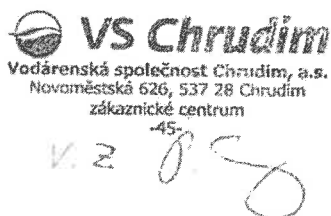 VS Chrudim
Vodárenská společnost Chrudim, a.s.
Novoměstská 626, 537 28 Chrudim
zákaznické centrum
-45-
V. z